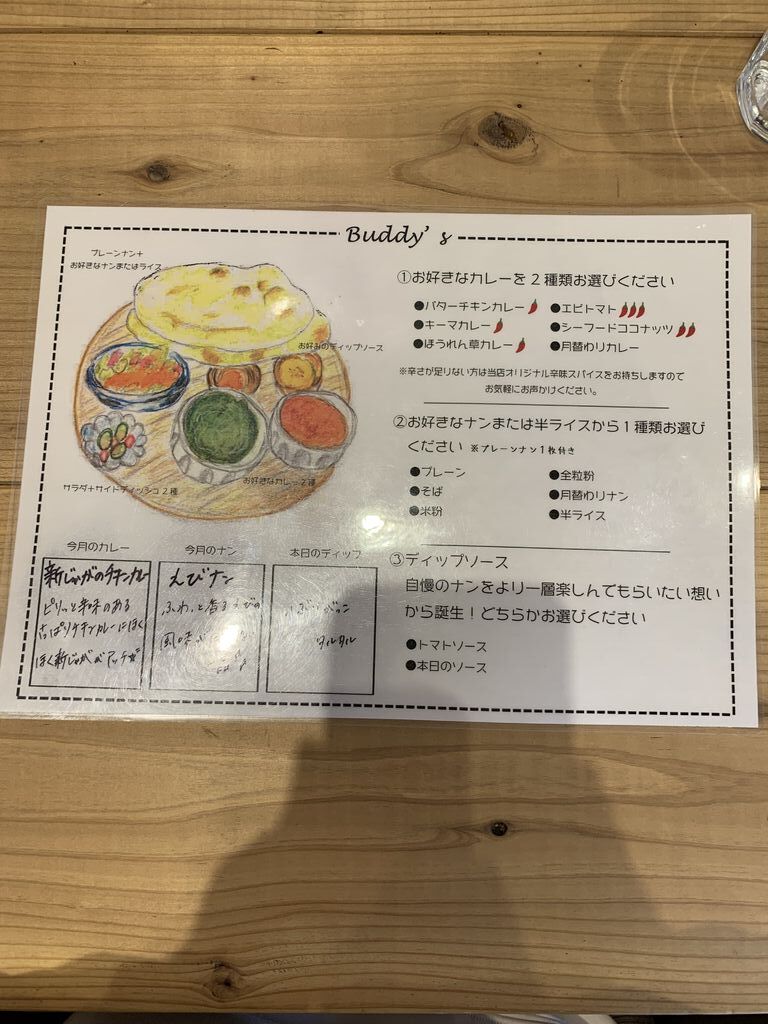 Buddy's
プレーンナン+
お好きなナンまたはライス
お好みのディップソース
お好きなカレー2種
サラダ+サイドディッシュ2種
今月のカレー
新じゃがのチキンカレー
ピリッと辛味のある
さっぱりチキンカレーにほく
ほく新じゃががマッチ
今月のナン
えびナン
ふわっと香るえびの
風味が
本日のディップ
タルタル
①お好きなカレーを2種類お選びください
●バターチキンカレー ●エビトマト
●キーマカレー ●シーフードココナッツ
●ほうれん草カレー ●月替わりカレー
※辛さが足りない方は当店オリジナル辛味スパイスをお持ちしますので
お気軽にお声かけください。
②お好きなナンまたは半ライスから1種類お選び
ください ※プレーンナン1枚付き
●プレーン ●全粒粉
●そば ●月替わりナン
●米粉 ●半ライス
③ディップソース
自慢のナンをより一層楽しんでもらいたい想い
から誕生!どちらかお選びください
●トマトソース
●本日のソース